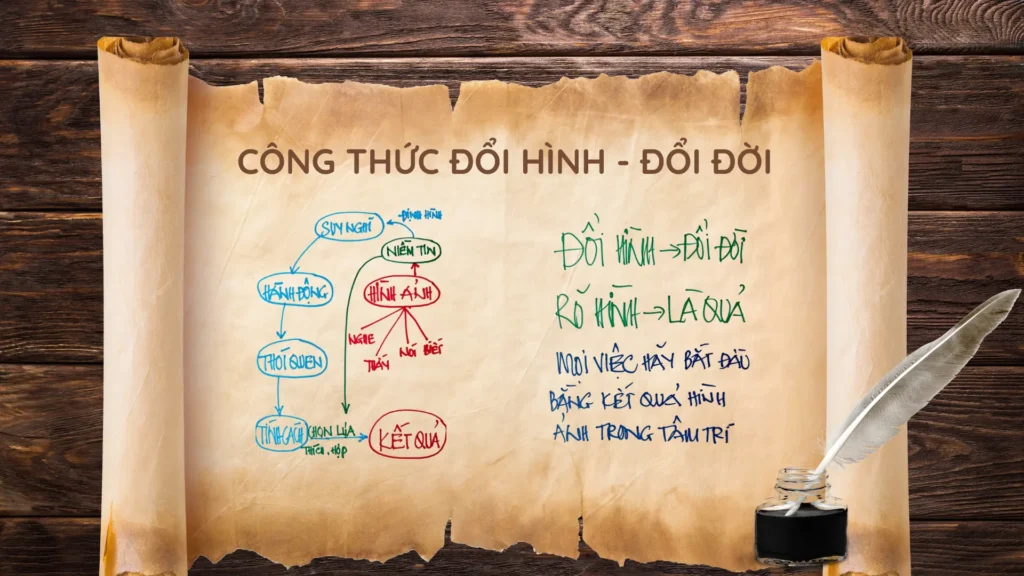 CÔNG THỨC ĐỔI HÌNH - ĐỔI ĐỜI
SUY NGHĨ
ĐỊNH HÌNH
NIỀM TIN
HÀNH ĐỘNG
HÌNH ẢNH
NGHE
THẤY
NÓI
BIẾT
THÓI QUEN
TÍNH CÁCH
CHỌN LỰA
THÍCH, HỢP
KẾT QUẢ
ĐỔI HÌNH → ĐỔI ĐỜI
RÕ HÌNH → LÀ QUẢ
MỌI VIỆC HÃY BẮT ĐẦU
BẰNG KẾT QUẢ HÌNH
ẢNH TRONG TÂM TRÍ